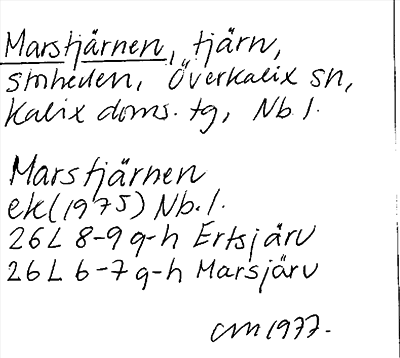 Marstjärnen, tjärn,
Storheden, Överkalix sn,
Kalix doms. tg, Nb. l.
Marstjärnen
ek (1975) Nb. l.
26L 8-9 g-h Ertsjärv
26L 6-7 g-h Marsjärv
CM 1977.